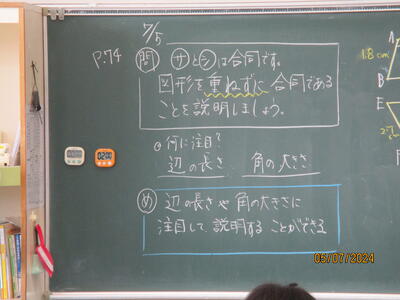 7/5
P.74
問 サとシは合同です。
図形を重ねずに合同である
ことを説明しましょう。
◎何に注目?
辺の長さ 角の大きさ
め 辺の長さや角の大きさに
注目して説明することができる
A
1.8cm
B
E
05/07/2024